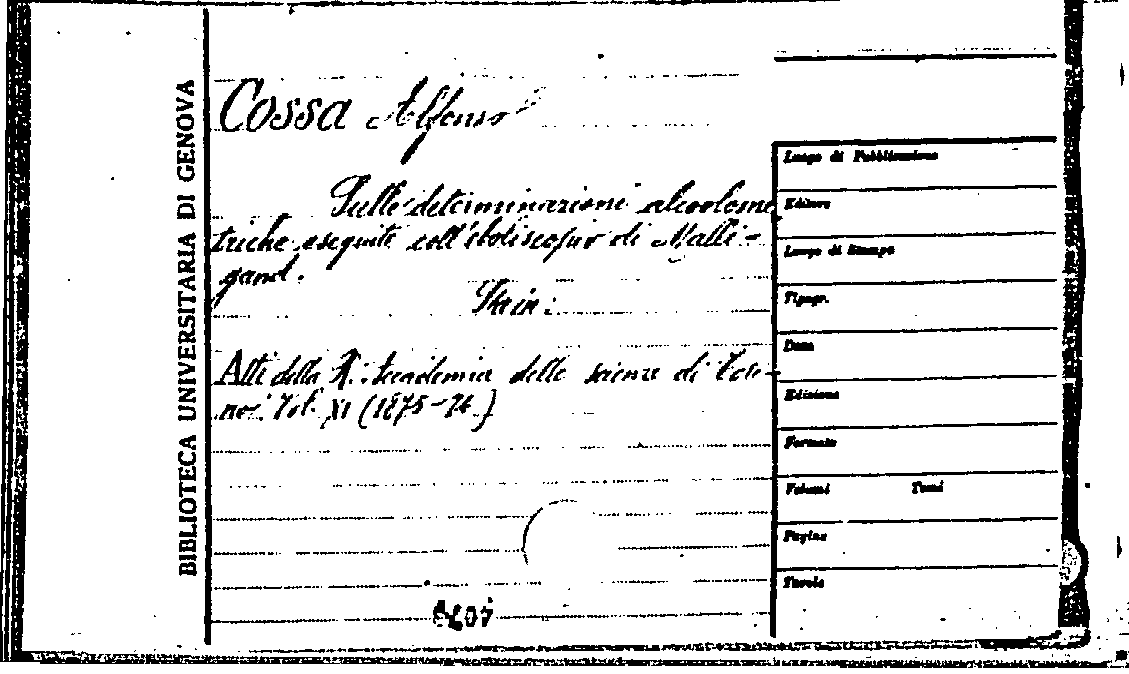 BIBLIOTECA UNIVERSITARIA DI GENOVA
Cossa Alfonso
Sulle determinazioni alcoolome
triche eseguite coll'ebolliscopio di Malli-
gand.
Atti della R. Accademia delle scienze di Tori-
no. Vol. XI (1875-76)
Luogo di Pubblicazione
Editore
Luogo di Stampa
Tipogr.
Data
Edizione
Formato
Volumi Tomi
Pagine
Tavole